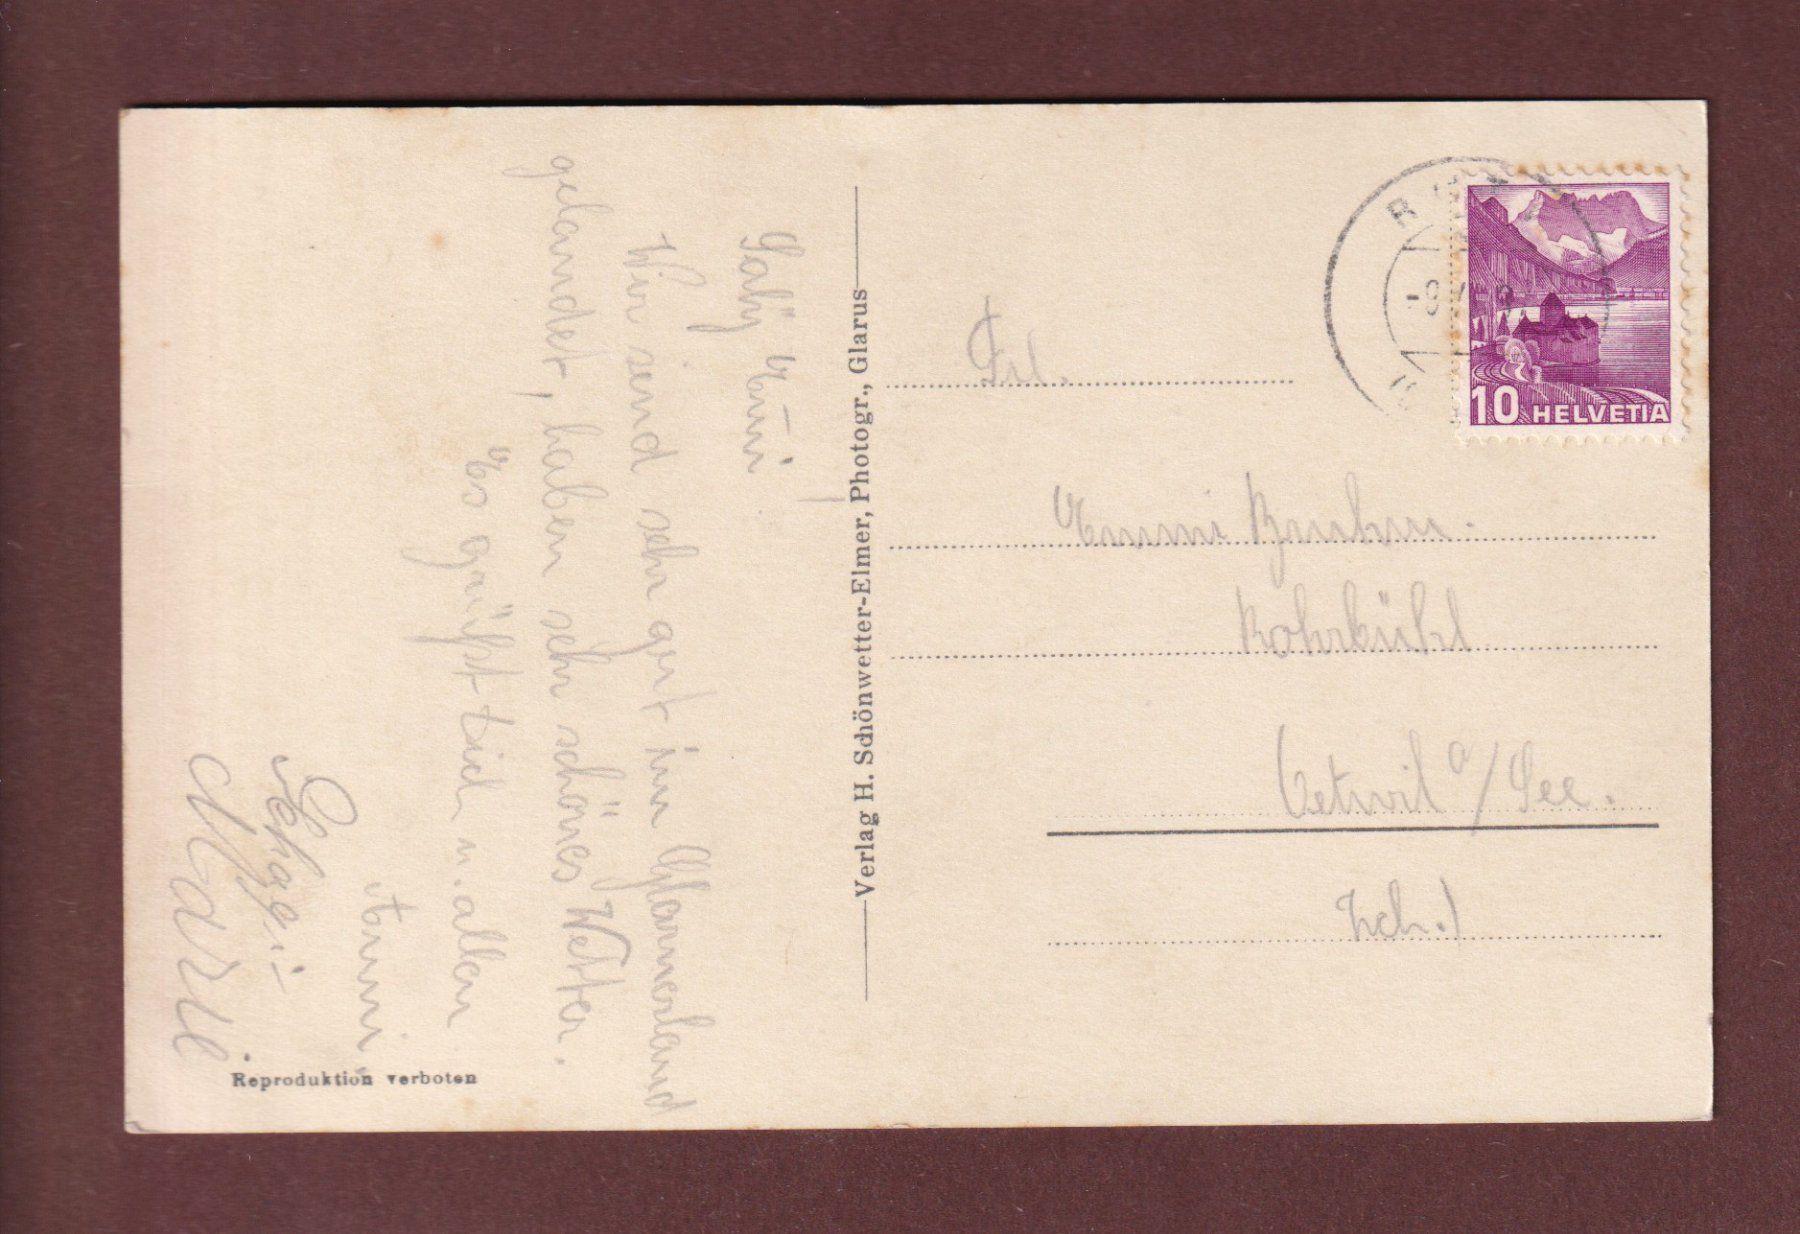 Wir sind sehr gut im Glarnerland
gelandet, haben sehr schönes Wetter.
Es grüsst dich u. allen
Anni
Marie
Reproduktion verboten
Verlag H. Schönwetter-Elmer, Photogr., Glarus
10 HELVETIA
Frl.
Emmi
Rohrbühl
Oetwil a/See.
Zch.)